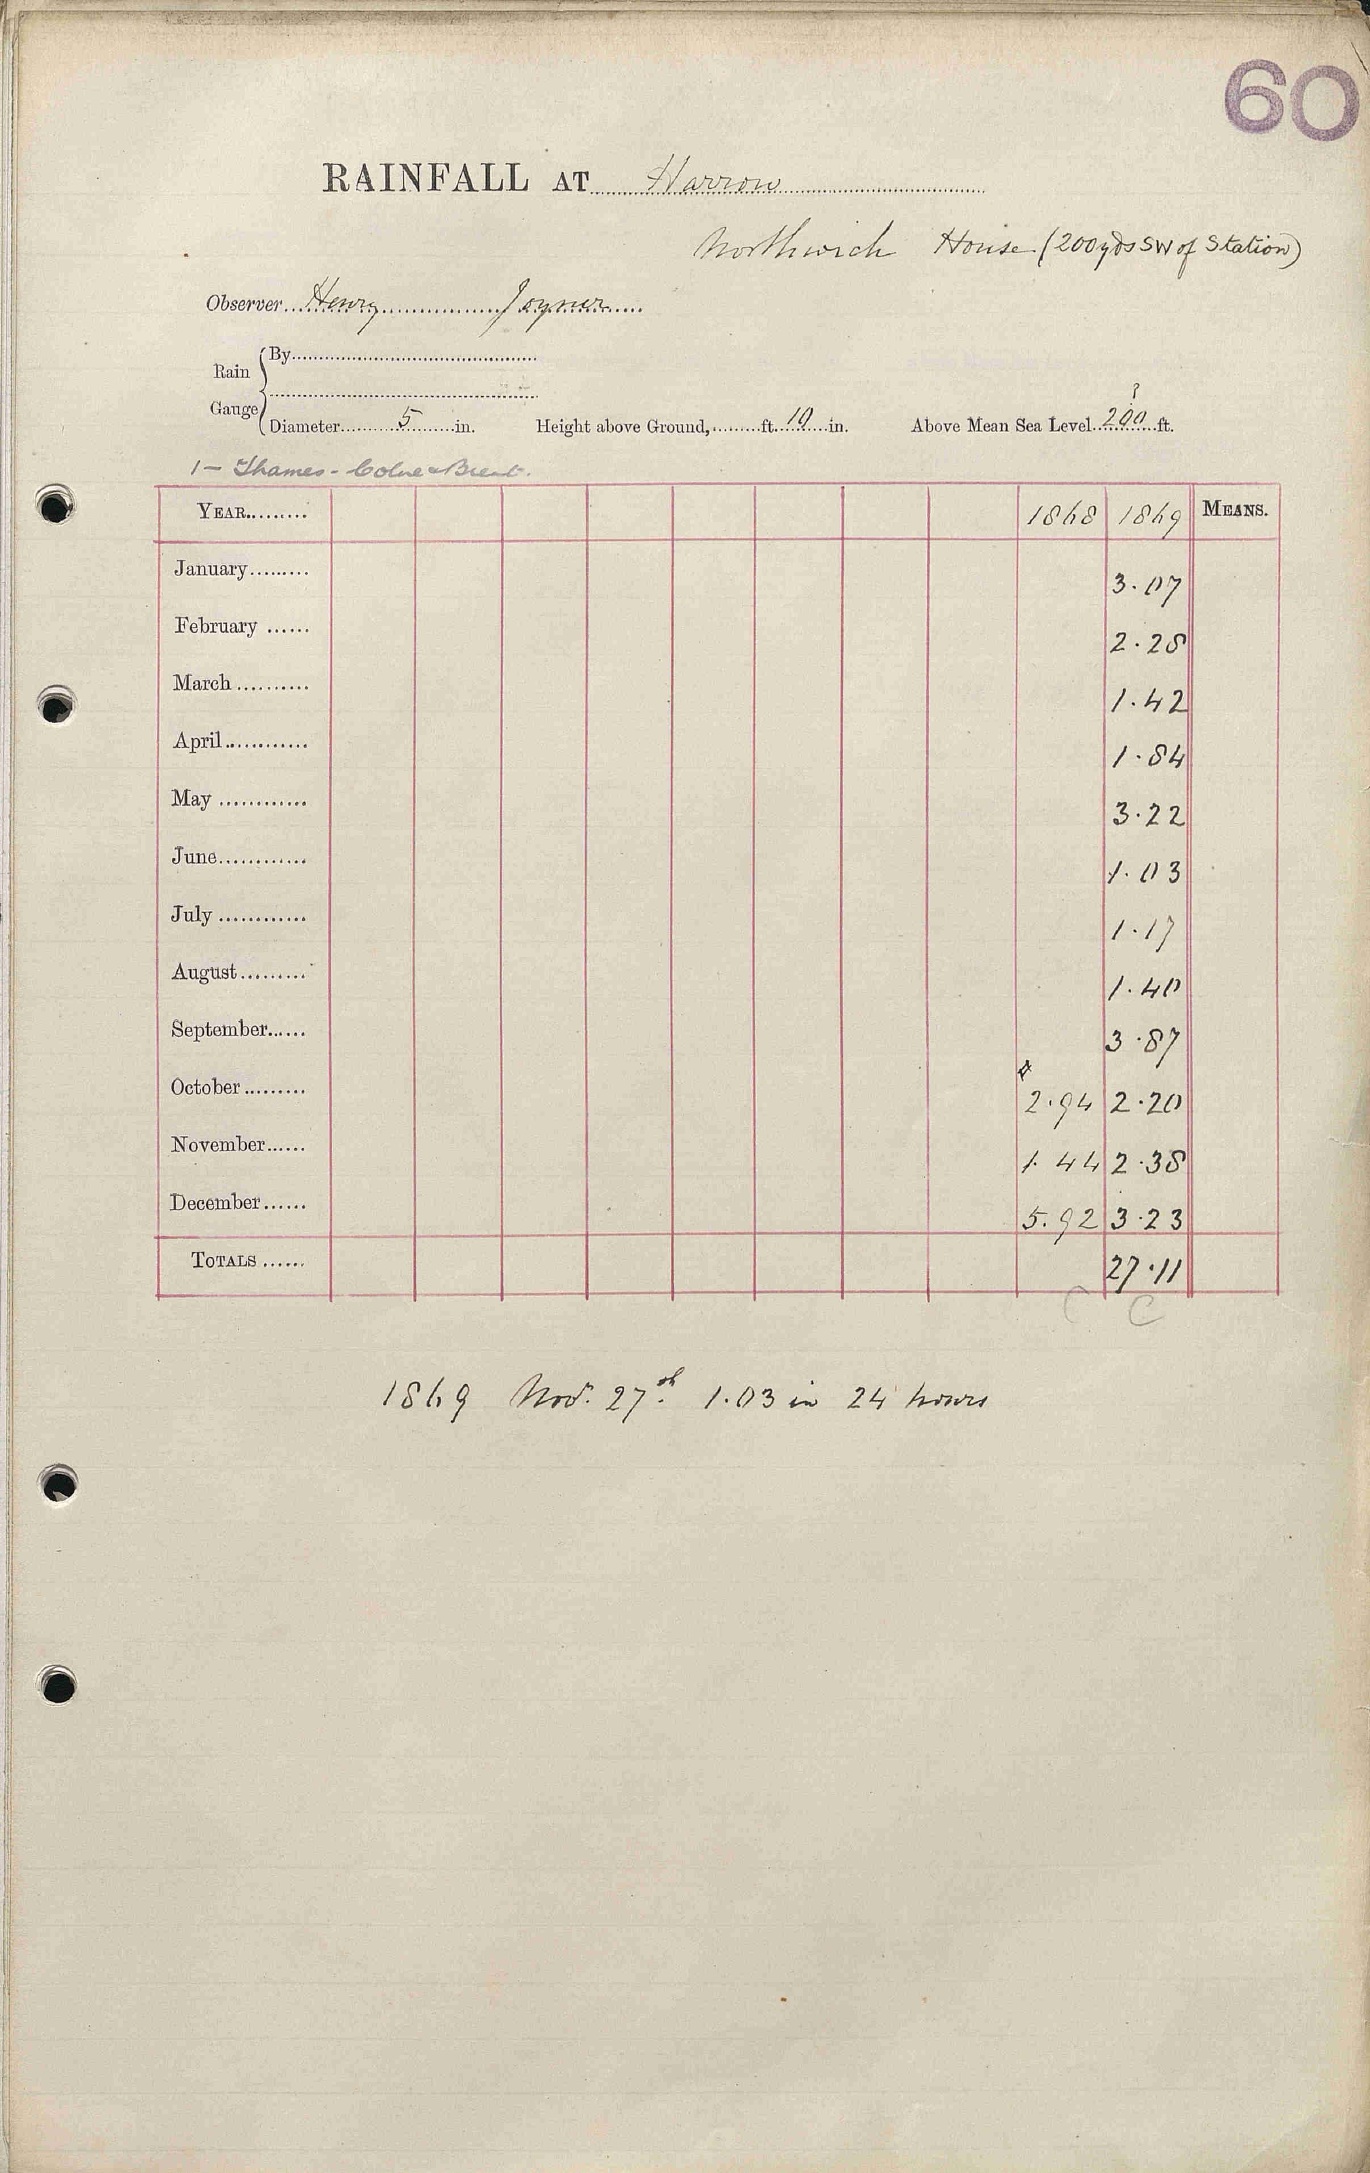 60
RAINFALL AT Harrow
Northwich House (200yds SW of Station)
Observer Henry Joyner
Rain Gauge
By
Diameter 5 in. Height above Ground, ft. 10 in. Above Mean Sea Level 200 ft.
?
1 - Thames - Colne & Brent.
YEAR 1868 1869 MEANS.
January 3.07
February 2.28
March 1.42
April 1.84
May 3.22
June 1.03
July 1.17
August 1.40
September 3.87
October 2.94 2.20
November 1.44 2.38
December 5.92 3.23
TOTALS 27.11
C C
1869 Nov. 27th 1.03 in 24 hours